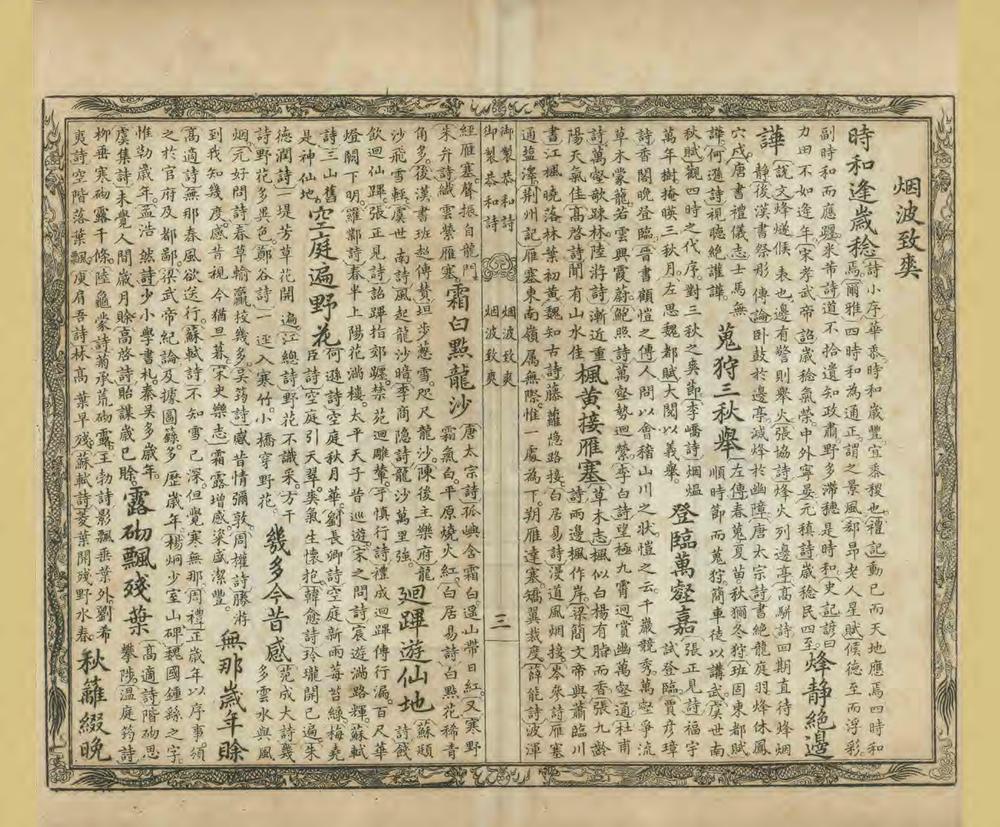 烟波致爽
時和逢歲稔
詩小序華黍時和歲豐宜黍稷也禮記動己而天地應焉四時和
焉爾雅四時和為通正謂之景風郄昂老人星賦候德至而浮彩
副時和而應躔米芾詩道不拾遺知政肅野多滯穗是時和史記諺曰
力田不如逢年宋孝武帝詔歲稔氣榮中外寧晏元稹詩歲稔民四至
烽靜絕邊
譁
說文烽燧候表也邊有警則舉火張協詩烽火列邊亭高駢詩四期直待烽烟
靜後漢書祭肜傳論卧鼓於邊亭滅烽於幽障唐太宗詩書絕龍庭羽烽休鳳
穴戍唐書禮儀志士馬無
譁何遜詩視聽絕諠譁
蒐狩三秋舉
左傳春蒐夏苗秋獮冬狩班固東都賦
順時節而蒐狩簡車徒以講武虞世南
秋賦觀四時之代序對三秋之爽節李嶠詩烟熅
萬年樹掩暎三秋月左思魏都賦大閱以義舉
登臨萬壑嘉
張正見詩福宇
試登臨賈彥璋
詩香閣晚登臨晉書顧愷之傳人問以會稽山川之狀愷之云千巖競秀萬壑爭流
草木蒙籠若雲興霞蔚鮑照詩萬壑勢迴縈李白詩望極九霄迥賞幽萬壑通杜甫
詩萬壑欹疎林陸
陽天氣佳高啓詩聞有山水佳
楓黃接雁塞
草木志楓似白楊有脂而香張九齡
詩兩邊楓作岸梁簡文帝與蕭臨川
書江楓曉落林葉初黃魏知古詩藤蘿隱路接白居易詩漫道風烟接岑參詩雁塞
通盬澤荆州記雁塞東南嶺屬無際惟一處為下朔雁達塞矯翼裁度薛能詩波渾
御製恭和詩 烟波致爽
御製恭和詩 烟波致爽
三
經雁塞聲振白龍門
朱弁詩緘雲縈雁塞
霜白點龍沙
唐太宗詩孤嶼含霜白遥山帶日紅又寒野
霜氣白平原燒火紅白居易詩白點花稀青
角多後漢書班超傳贊坦步葱雪咫尺龍沙陳後主樂府龍
沙飛雪輕虞世南詩風起龍沙暗李商隱詩龍沙萬里強
廻蹕遊仙地
蘇頲
詩餞
飲迴仙蹕張正見詩詔蹕拍郊
禁苑迴雕輦于慎行詩禮成迴蹕傳行漏百尺華
燈闕下明羅鄴詩春半上陽花滿樓太平天子昔巡遊宋之問詩宸遊滿路輝蘇軾
詩三山舊
是神仙地
空庭遍野花
何遜詩空庭秋月華劉長卿詩空庭新雨莓苔綠梅堯
臣詩空庭引天翠爽氣生懷抱韓愈詩玲瓏開已遍朱
德潤詩一堤芳草花開遍江總詩野花不識采方干
詩野花多異色鄭谷詩一逕入寒竹小橋穿野花
幾多今昔感
范成大詩幾
多雲水與風
烟元好問詩春草輸贏校幾多吴筠詩感昔情彌敦周權詩勝游
到我知幾度感昔視今猶旦暮宋史樂志霜露增感粢盛潔豐
無那歲年賒
高適詩無那春風欲送行蘇軾詩不知雪已深但覺寒無那周禮正歲年以序事頒
之於官府及都鄙梁武帝紀論及據圖籙多歷歲年楊炯少室山碑魏國鍾繇之字
惟勒歲年孟浩然詩少小學書札秦吴多歲年
虞集詩未覺人間歲月賒高啓詩貽謀歲已賒
露砌飄殘葉
高適詩階砌思
攀陟温庭筠詩
柳垂寒砌露千條陸龜蒙詩菊承荒砌露王勃詩影飄垂葉外劉希
夷詩空階落葉飄庾肩吾詩林高葉早殘蘇軾詩菱葉開殘野水春
秋籬綴晚